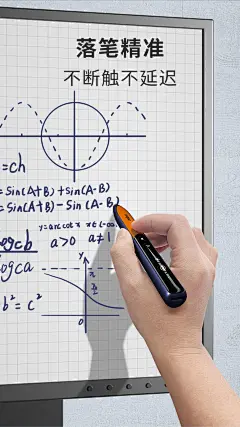 落笔精准
不断触不延迟
=ch
=Sin(A+B)+Sin(A-B)
=Sin(A+B)-Sin(A-B)
y=arccotx x∈(-∞
logcb
a>0 a≠1
logca
y
π
π/2
b²=c²
0